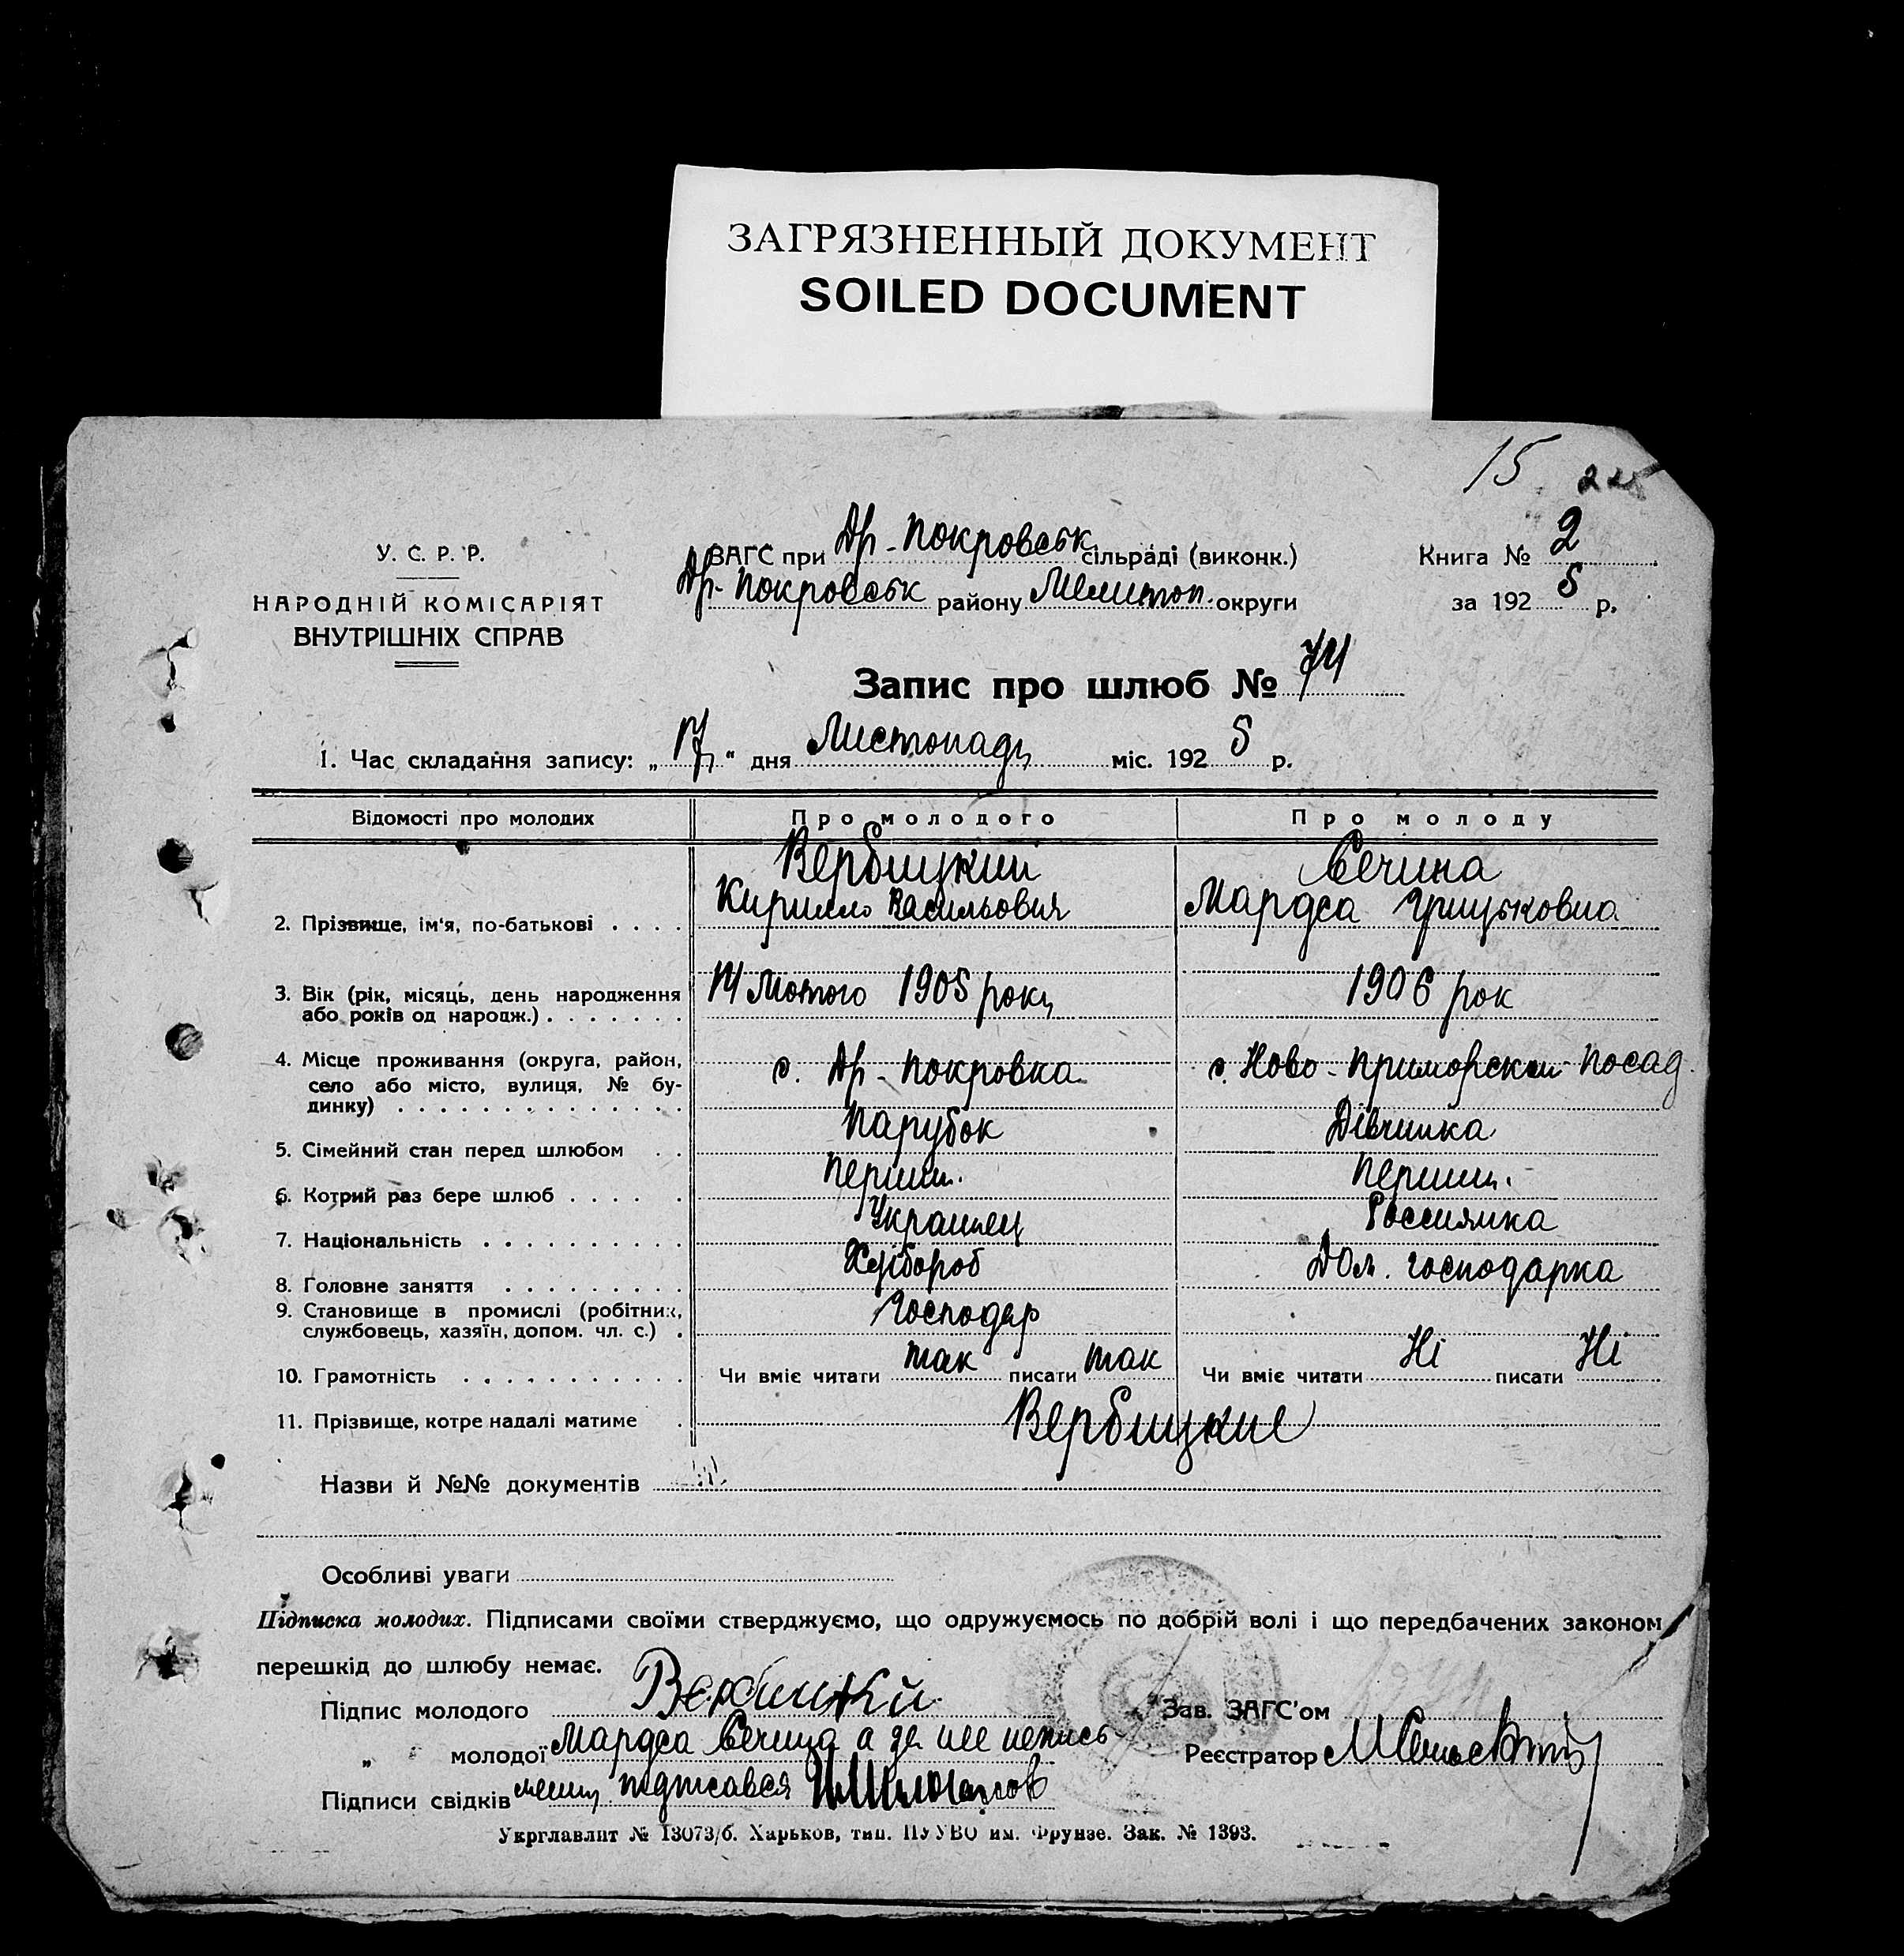 ЗАГРЯЗНЕННЫЙ ДОКУМЕНТ
SOILED DOCUMENT
15
У. С. Р. Р.
НАРОДНІЙ КОМІСАРІЯТ
ВНУТРІШНІХ СПРАВ
ЗАГС при Др-Покровськ сільраді (виконк.)
Др-Покровськ району Мелитоп. округи
Книга № 2
за 192 5 р.
Запис про шлюб № 74
1. Час складання запису: „ 17 “ дня Листопаду міс. 192 5 р.
Відомості про молодих Про молодого Про молоду
Вербицкий Сечина
2. Прізвище, ім'я, по-батькові . . . . Кирилло Васильович Марфа Грицьковна
3. Вік (рік, місяць, день народження 14 Лютого 1905 року 1906 рок
або років од народж.) . . . . . . .
4. Місце проживання (округа, район, с. Др-Покровка с. Ново-Приморский Посад.
село або місто, вулиця, № бу-
динку) . . . . . . . . . . . . . .
5. Сімейний стан перед шлюбом . . Парубок Дівчинка
6. Котрий раз бере шлюб . . . . . Перший. Перший.
7. Національність . . . . . . . . . . Українец Россиянка
8. Головне заняття . . . . . . . . . Хлібороб Дом. господарка
9. Становище в промислі (робітник, Господар
службовець, хазяїн, допом. чл. с.) .
10. Грамотність . . . . . . . . . . . Чи вміє читати так писати так Чи вміє читати Ні писати Ні
11. Прізвище, котре надалі матиме . Вербицкие
Назви й №№ документів
Особливі уваги
Підписка молодих. Підписами своїми стверджуємо, що одружуємось по добрій волі і що передбачених законом
перешкід до шлюбу немає.
Підпис молодого Вербицкий
Зав. ЗАГС'ом
„ „ молодої Марфа Сечина а за неє
Реєстратор
Підписи свідків підписався
Укрглавлит № 13073/б. Харьков, тип. ПУУВО им. Фрунзе. Зак. № 1393.